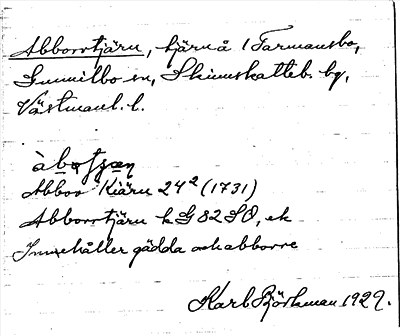 Abborrtjärn, tjärn å 1 Farmansbo,
Gunnilbo sn, Skinnskatteb. bg,
Västmanl. l.
àbo̱rtjæ̱n
Abbor Kiärn 24² (1731)
Abborrtjärn k G 82 SO, ek
Innehåller gädda och abborre
Karl Björkman 1929.